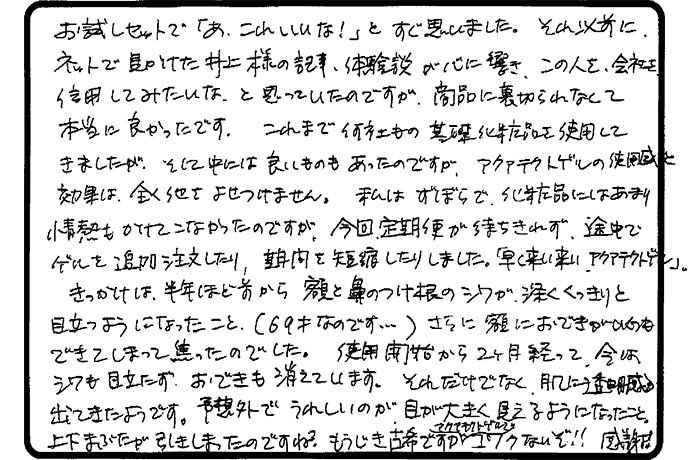 お試しセットで「あ、これいいな!」とすぐ思いました。それ以前に、
ネットで見かけた井上様の記事、体験談が心に響き、この人を、会社を
信用してみたいな、と思っていたのですが、商品に裏切られなくて
本当に良かったです。これまで何社もの基礎化粧品を使用して
きましたが、そして中には良いものもあったのですが、アクアテクトゲルの使用感と
効果は、全く他をよせつけません。私はずぼらで、化粧品にはあまり
情熱もかけてこなかったのですが、今回定期便が待ちきれず、途中で
ゲルを追加注文したり、期間を短縮したりしました。「早く来い来い アクアテクトゲル」。
きっかけは、半年ほど前から額と鼻のつけ根のシワが、深くくっきりと
目立つようになったこと、(69才なのです…)さらに額におできがいくつも
できてしまって焦ったのでした。使用開始から2ヶ月経って、今は
シワも目立たず、おできも消えています。それだけでなく、肌に透明感が
出てきたようです。予想外でうれしいのが、目が大きく見えるようになったこと。
上下まぶたが引きしまったのですね。もうじき古希ですがアクアテクトゲルでコワクないぞ!! 感謝